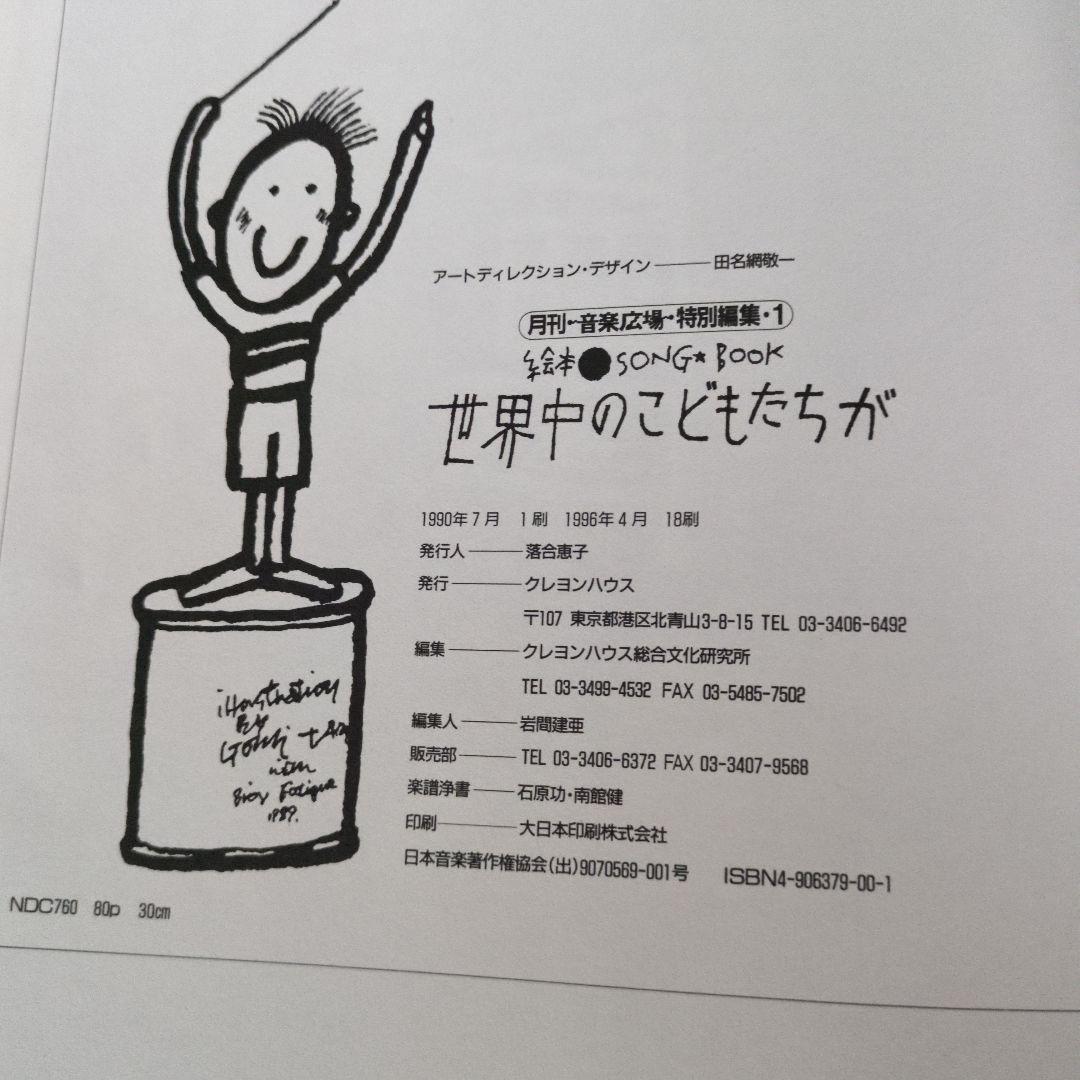 アートディレクション・デザイン――田名網敬一
月刊~音楽広場~特別編集・1
絵本●SONG★BOOK
世界中のこどもたちが
1990年7月 1刷 1996年4月 18刷
発行人――落合恵子
発行――クレヨンハウス
〒107 東京都港区北青山3-8-15 TEL 03-3406-6492
編集――クレヨンハウス総合文化研究所
TEL 03-3499-4532 FAX 03-5485-7502
編集人――岩間建亜
販売部――TEL 03-3406-6372 FAX 03-3407-9568
楽譜浄書――石原功・南館健
印刷――大日本印刷株式会社
日本音楽著作権協会(出)9070569-001号 ISBN4-906379-00-1
illustration
By
1989.
NDC760 80p 30cm